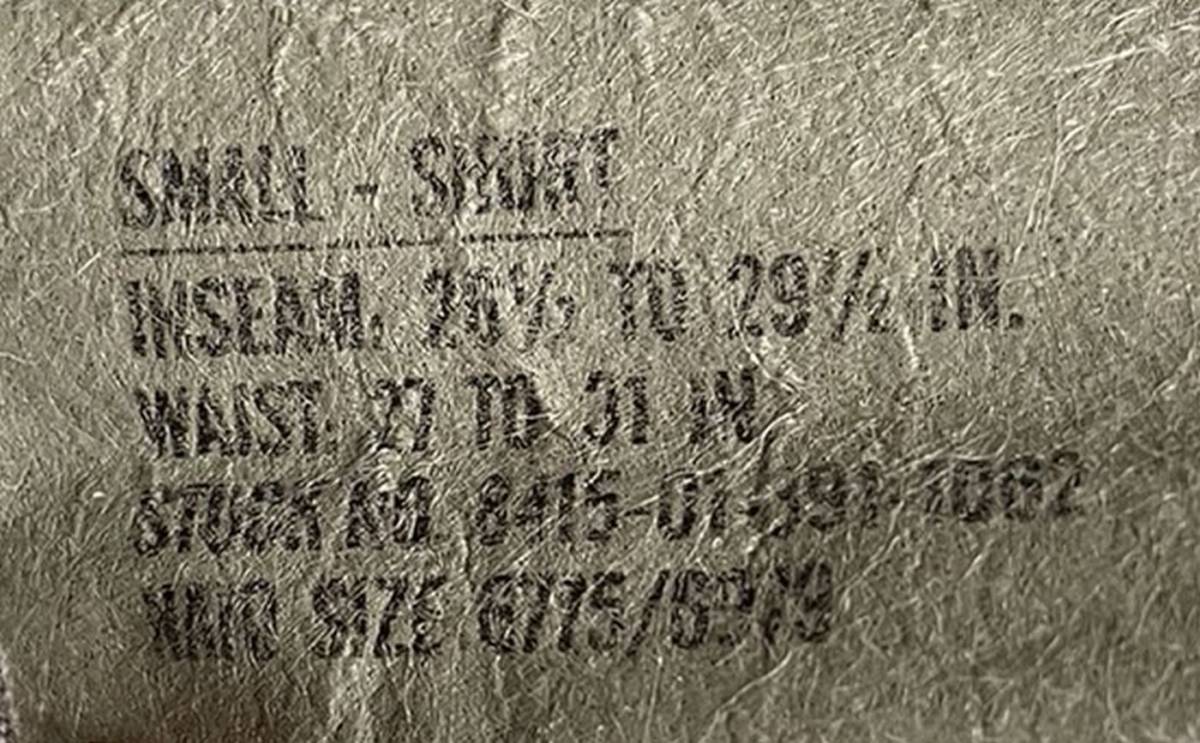 SMALL - SHORT
INSEAM. 26½ TO 29½ IN.
WAIST. 27 TO 31 IN
STOCK NO. 8415-01-391-1062
NATO SIZE